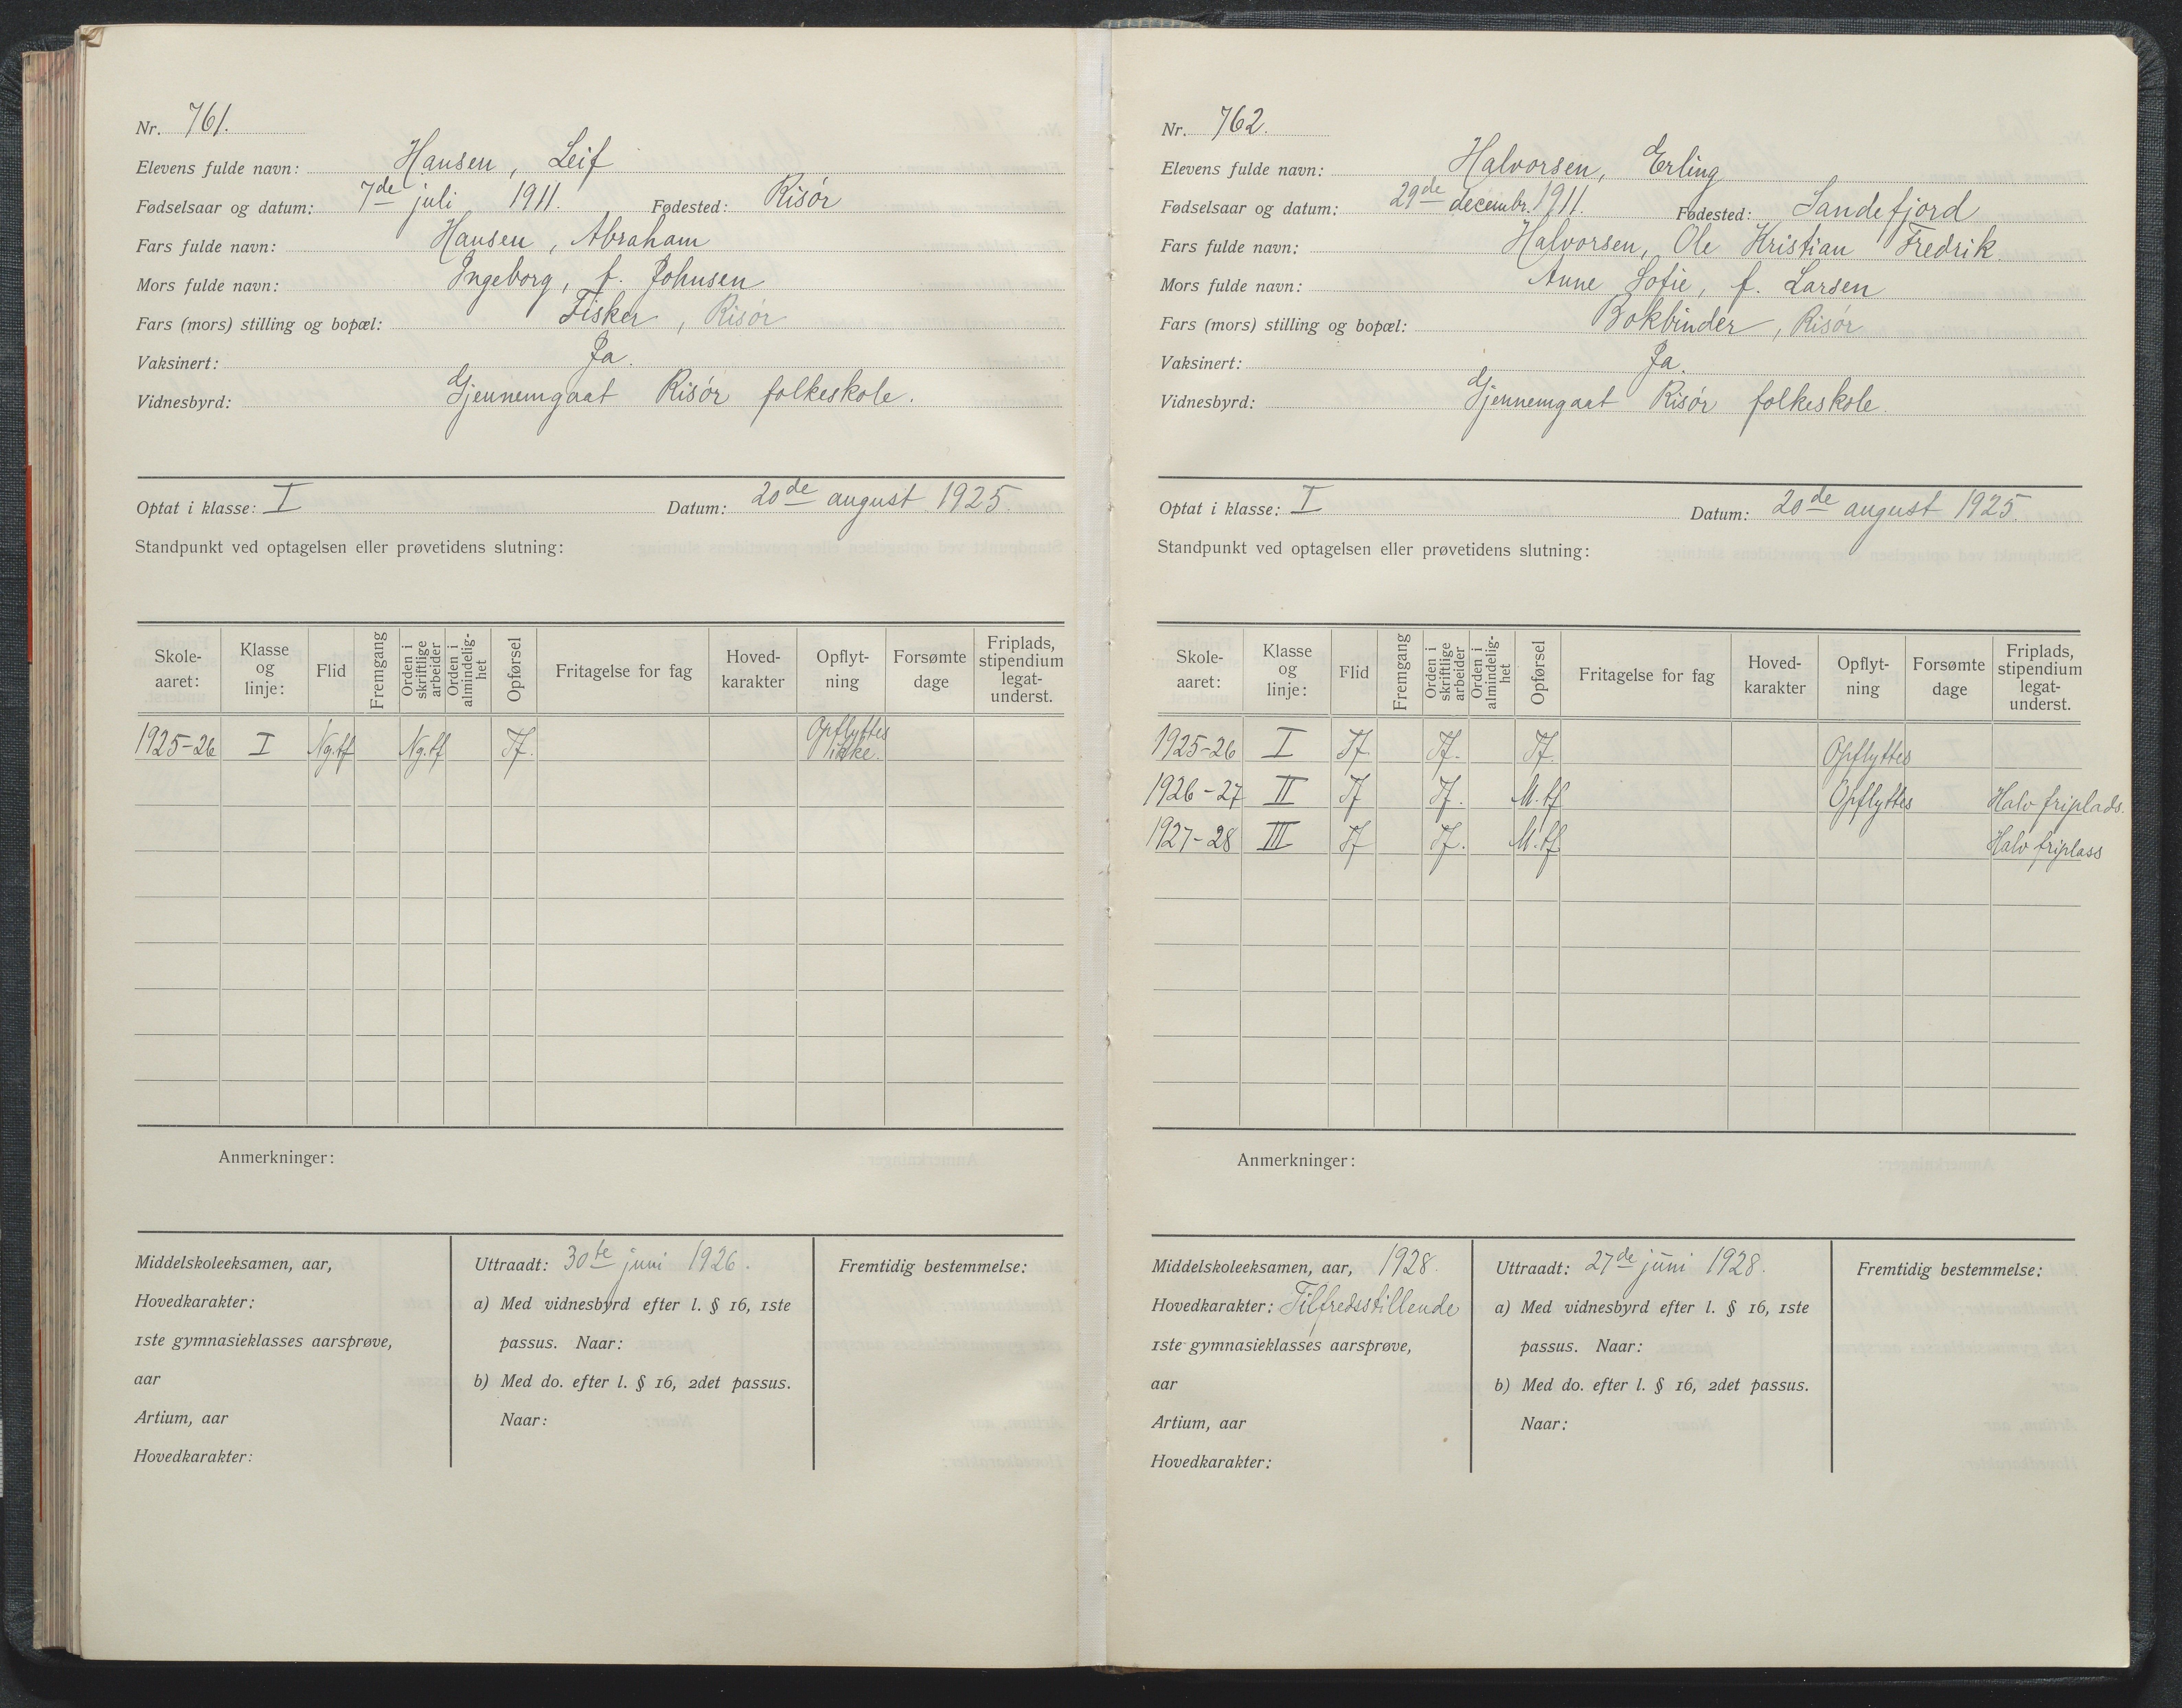 Nr. 761.
Elevens fulde navn: Hansen, Leif
Fødselsaar og datum: 7de juli 1911. Fødested: Risør
Fars fulde navn: Hansen, Abraham
Mors fulde navn: Ingeborg, f. Johnsen
Fars (mors) stilling og bopæl: Fisker, Risør
Vaksinert: Ja.
Vidnesbyrd: Gjennemgaat Risør folkeskole.
Optat i klasse: I Datum: 20de august 1925.
Standpunkt ved optagelsen eller prøvetidens slutning:
Skole-aaret: Klasse og linje: Flid Fremgang Orden i skriftlige arbeider Orden i almindelig-het Opførsel Fritagelse for fag Hoved-karakter Opflyt-ning Forsømte dage Friplads, stipendium legat-underst.
1925-26 I Ng.tf Ng.tf Tf. Opflyttes ikke.
Anmerkninger:
Middelskoleeksamen, aar,
Hovedkarakter:
1ste gymnasieklasses aarsprøve,
aar
Artium, aar
Hovedkarakter:
Uttraadt: 30te juni 1926.
a) Med vidnesbyrd efter l. § 16, 1ste
passus. Naar:
b) Med do. efter l. § 16, 2det passus.
Naar:
Fremtidig bestemmelse:
Nr. 762.
Elevens fulde navn: Halvorsen, Erling
Fødselsaar og datum: 29de decembr. 1911. Fødested: Sandefjord
Fars fulde navn: Halvorsen, Ole Kristian Fredrik
Mors fulde navn: Anne Sofie, f. Larsen
Fars (mors) stilling og bopæl: Bokbinder, Risør
Vaksinert: Ja.
Vidnesbyrd: Gjennemgaat Risør folkeskole.
Optat i klasse: I Datum: 20de august 1925.
Standpunkt ved optagelsen eller prøvetidens slutning:
Skole-aaret: Klasse og linje: Flid Fremgang Orden i skriftlige arbeider Orden i almindelig-het Opførsel Fritagelse for fag Hoved-karakter Opflyt-ning Forsømte dage Friplads, stipendium legat-underst.
1925-26 I Tf. Tf. Tf. Opflyttes
1926-27 II Tf Tf. M.tf Opflyttes Halv friplads.
1927-28 III Tf Tf. M.tf Halv friplass
Anmerkninger:
Middelskoleeksamen, aar, 1928.
Hovedkarakter: Tilfredsstillende
1ste gymnasieklasses aarsprøve,
aar
Artium, aar
Hovedkarakter:
Uttraadt: 27de juni 1928.
a) Med vidnesbyrd efter l. § 16, 1ste
passus. Naar:
b) Med do. efter l. § 16, 2det passus.
Naar:
Fremtidig bestemmelse: